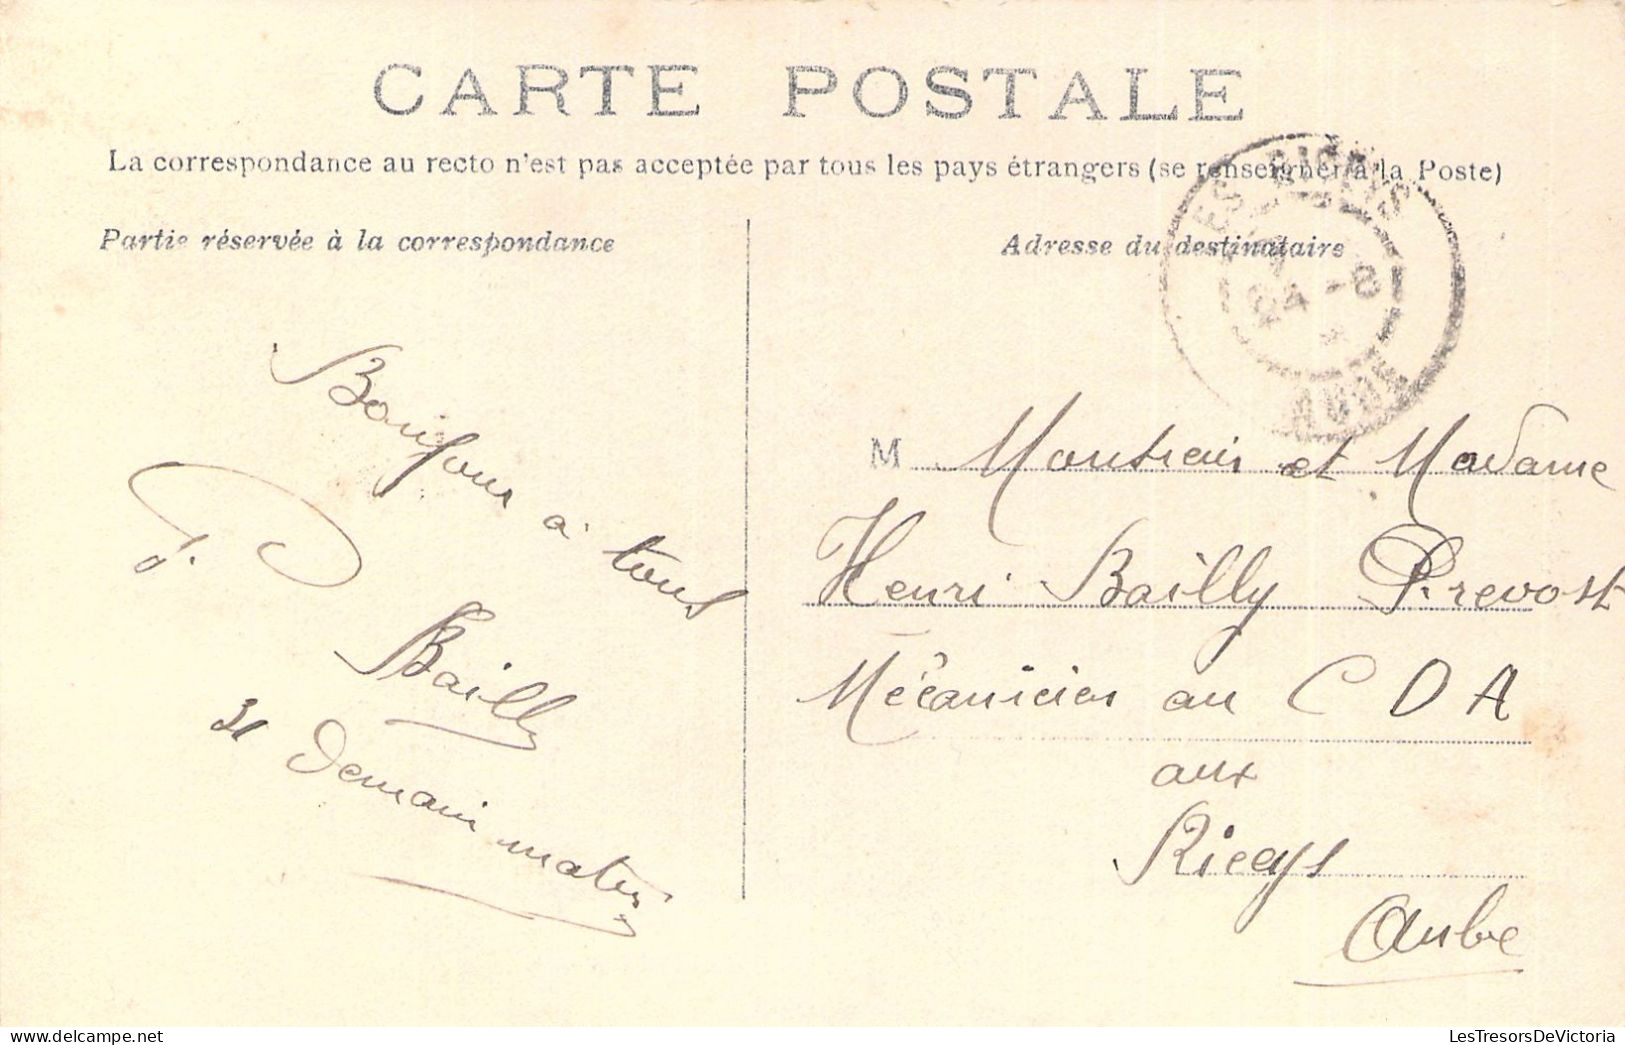 CARTE POSTALE
La correspondance au recto n'est pas acceptée par tous les pays étrangers (se renseigner à la Poste)
Partie réservée à la correspondance
Bonjour à tous
Bailly
Demain matin
Adresse du destinataire
AUBE
M Monsieur et Madame
Henri Bailly Prevost
Mécanicien au C D A
aux
Riceys
Aube
LesTresorsDeVictoria
www.delcampe.net